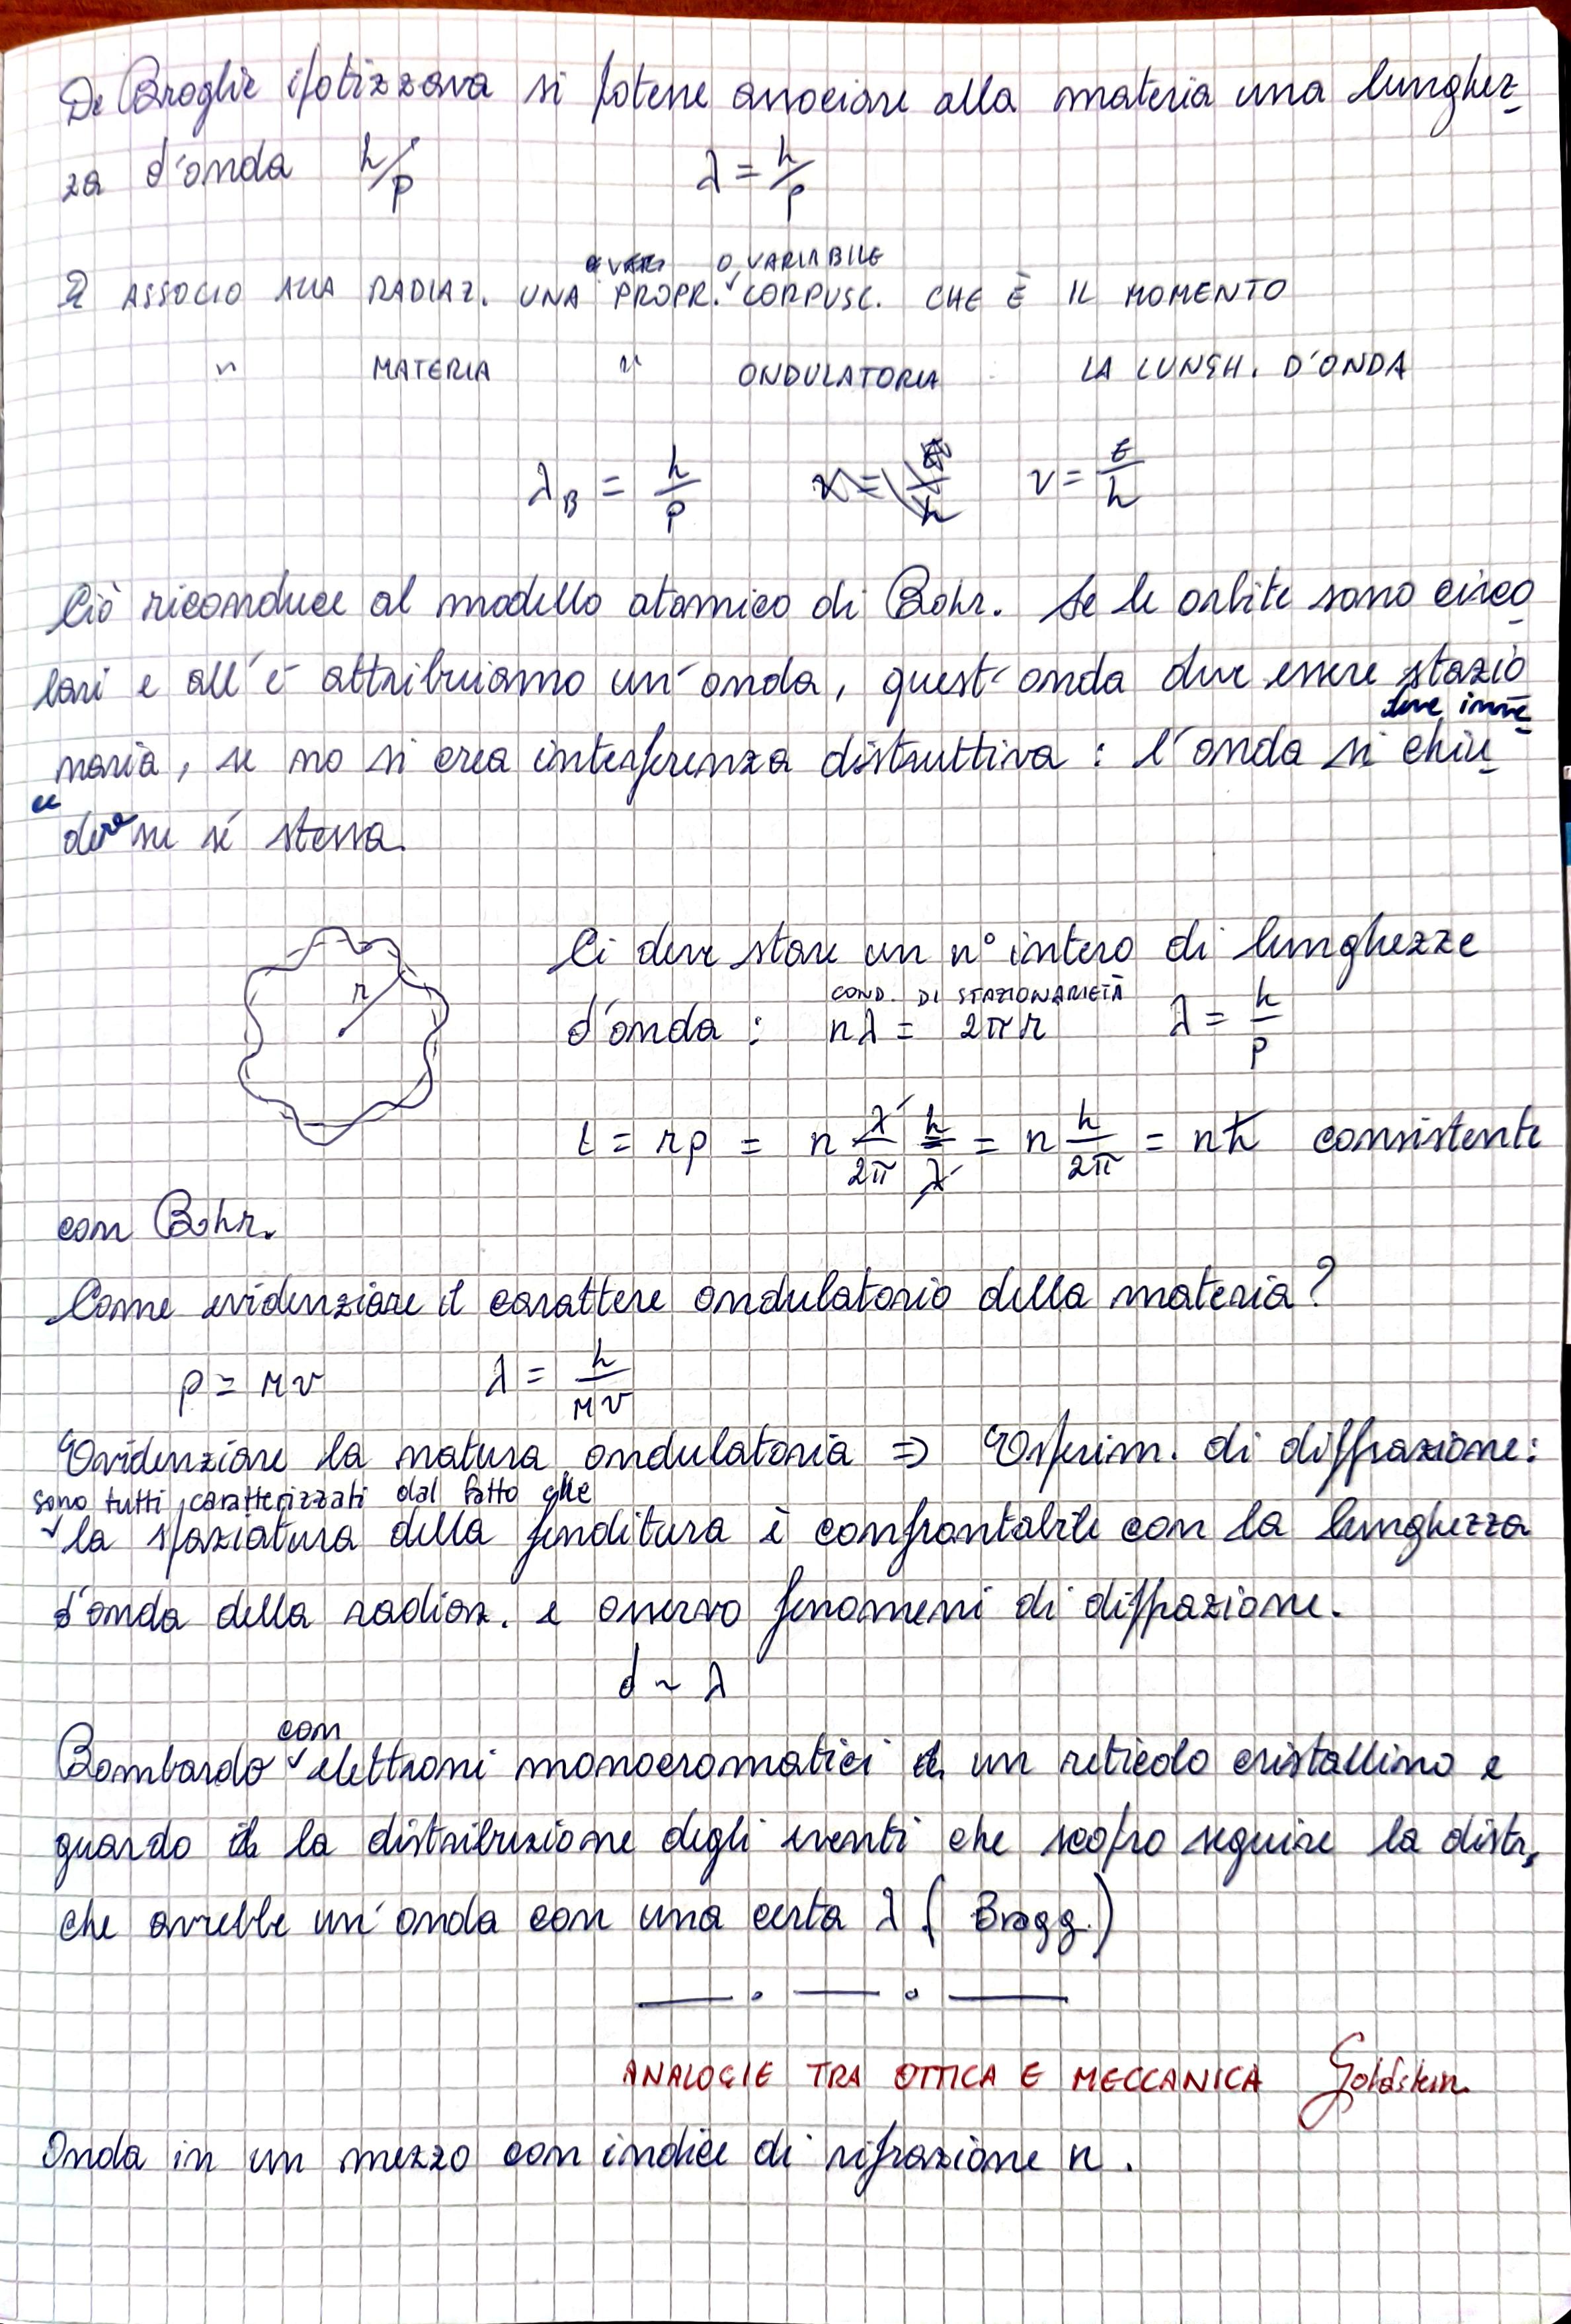 De Broglie ipotizzava si potesse associare alla materia una lunghez-
za d'onda h/p λ = h/p
O VARIABILE
ASSOCIO ALLA RADIAZ. UNA PROPR. CORPUSC. CHE È IL MOMENTO
" MATERIA " ONDULATORIA LA LUNGH. D'ONDA
λ_B = h/p ν = E/h
Ciò riconduce al modello atomico di Bohr. Se le orbite sono circo-
lari e all'e⁻ attribuiamo un'onda, quest'onda deve essere stazio-
naria, se no si crea interferenza distruttiva: l'onda si
su sé stessa.
r
Ci deve stare un n° intero di lunghezze
COND. DI STAZIONARIETÀ
d'onda: nλ = 2πr λ = h/p
L = rp = n λ/2π h/λ = n h/2π = nħ consistente
con Bohr.
Come evidenziare il carattere ondulatorio della materia?
p = Mv λ = h/Mv
Evidenziare la natura ondulatoria ⇒ Esperim. di diffrazione:
sono tutti caratterizzati dal fatto che
la spaziatura della fenditura è confrontabile con la lunghezza
d'onda della radiaz. e osservo fenomeni di diffrazione.
d ~ λ
con
Bombardo elettroni monocromatici un reticolo cristallino e
guardo la distribuzione degli eventi che scopro seguire la distr.
che avrebbe un'onda con una certa λ (Bragg.)
ANALOGIE TRA OTTICA E MECCANICA Goldstein
Onda in un mezzo con indice di rifrazione n.